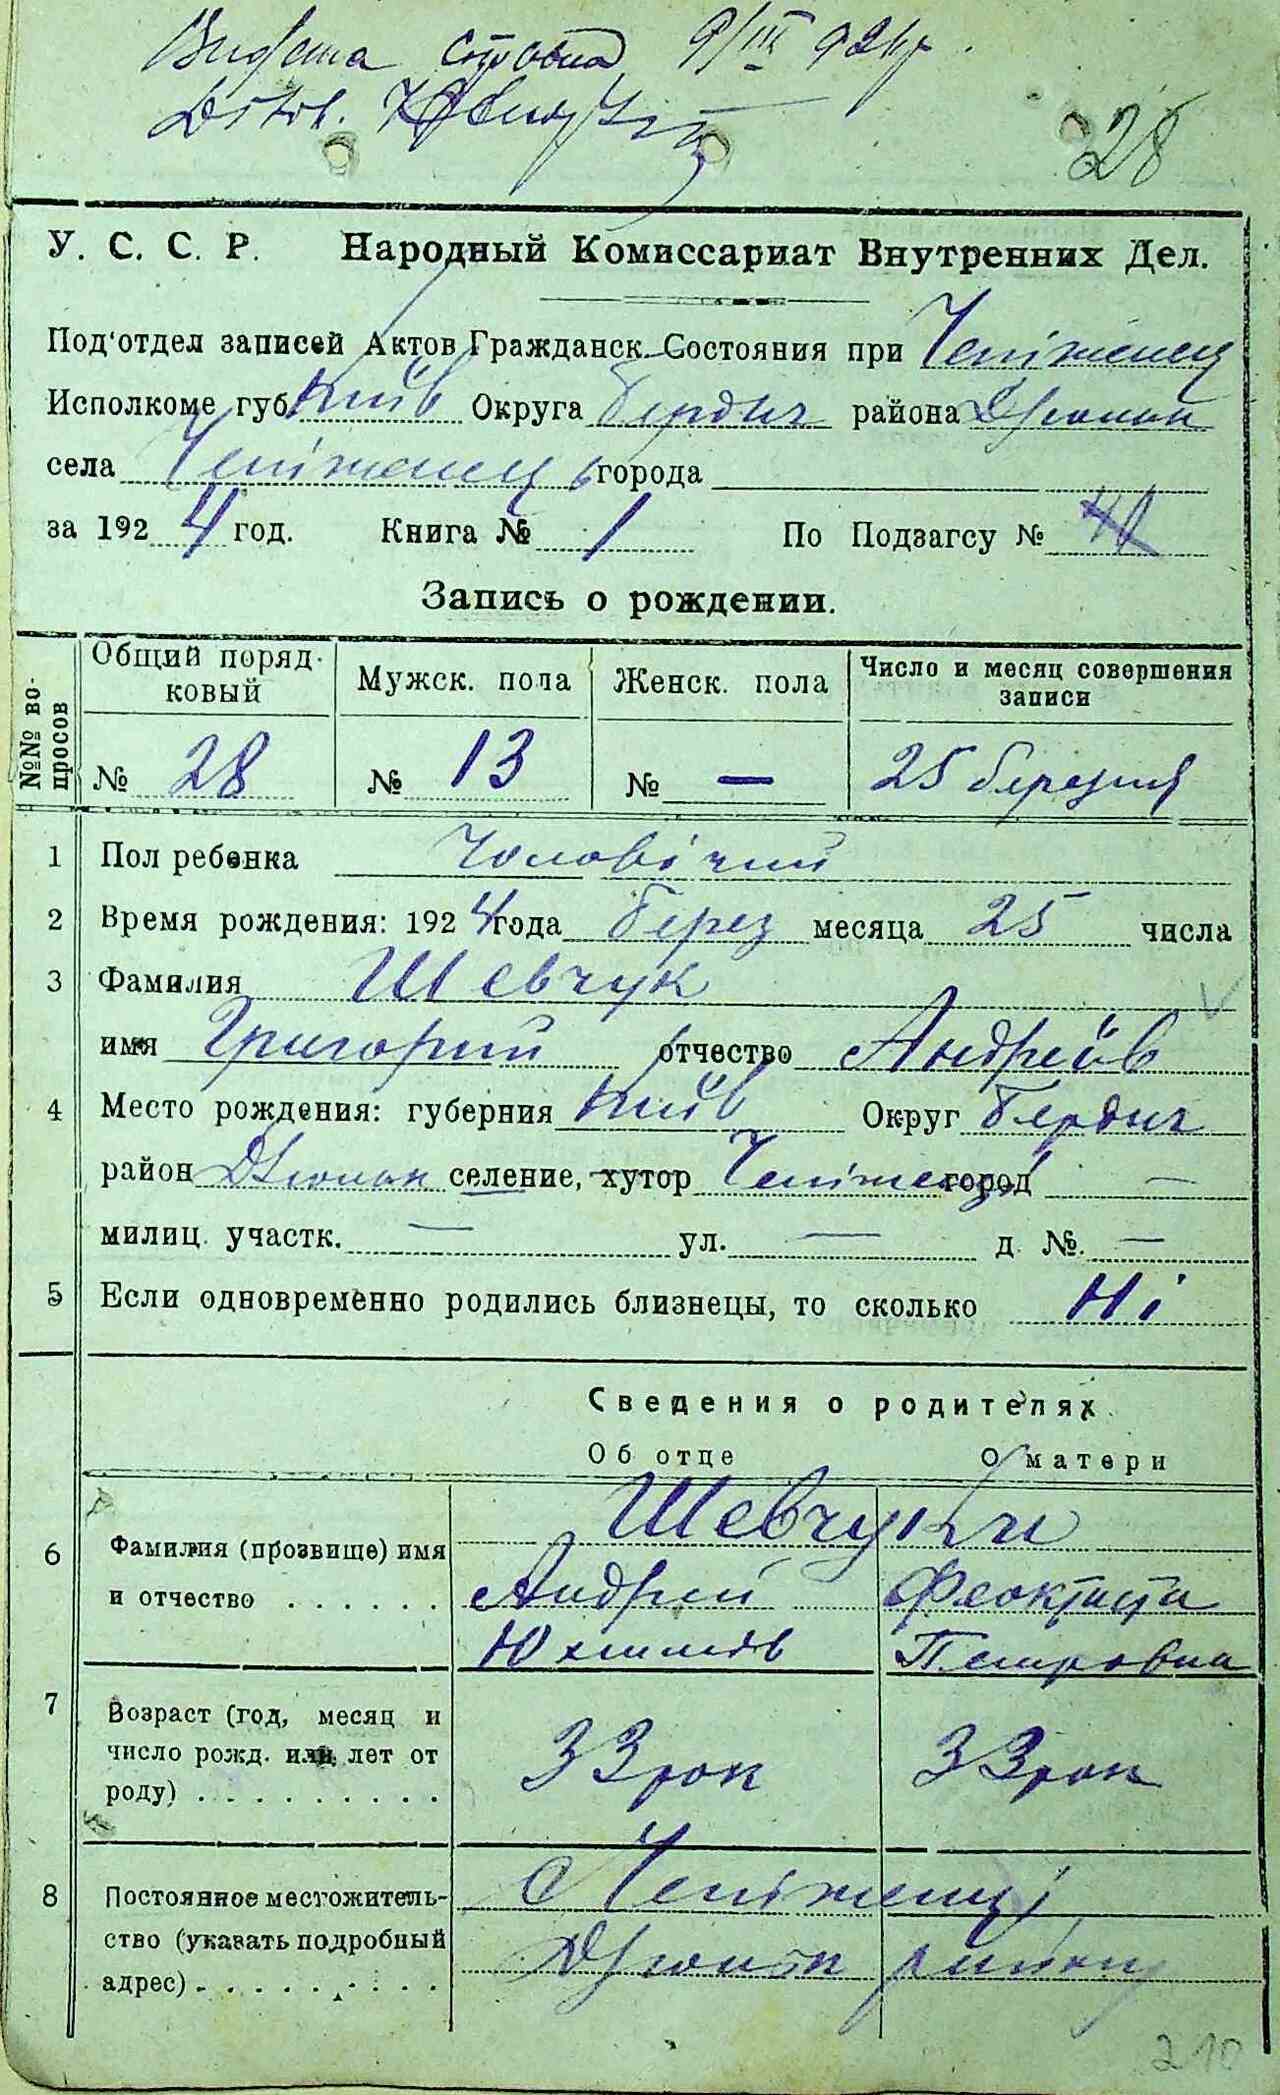 28
У. С. С. Р. Народный Комиссариат Внутренних Дел.
Под'отдел записей Актов Гражданск. Состояния при
Исполкоме губ. Київ Округа Бердич района Дзюньк
села города
за 1924 год. Книга № 1 По Подзагсу №
Запись о рождении.
№№ вопросов
Общий порядковый Мужск. пола Женск. пола Число и месяц совершения записи
№ 28 № 13 № — 25 березня
1 Пол ребенка Чоловічий
2 Время рождения: 1924 года берез месяца 25 числа
3 Фамилия Шевчук
имя Григорий отчество Андреів
4 Место рождения: губерния Київ Округ Бердич
район Дзюньк селение, хутор город —
милиц. участк. — ул. — д. №. —
5 Если одновременно родились близнецы, то сколько Ні
Сведения о родителях
Об отце О матери
Шевчуки
6 Фамилия (прозвище) имя
и отчество . . . . . . Андрей Феоктиста
Юхимів Петровна
7 Возраст (год, месяц и
число рожд. или лет от
роду) . . . . . . . . . . 33 рок 33 рок
8 Постоянное местожитель-
ство (указать подробный
адрес) . . . . . . . . . Дзюньк району
210